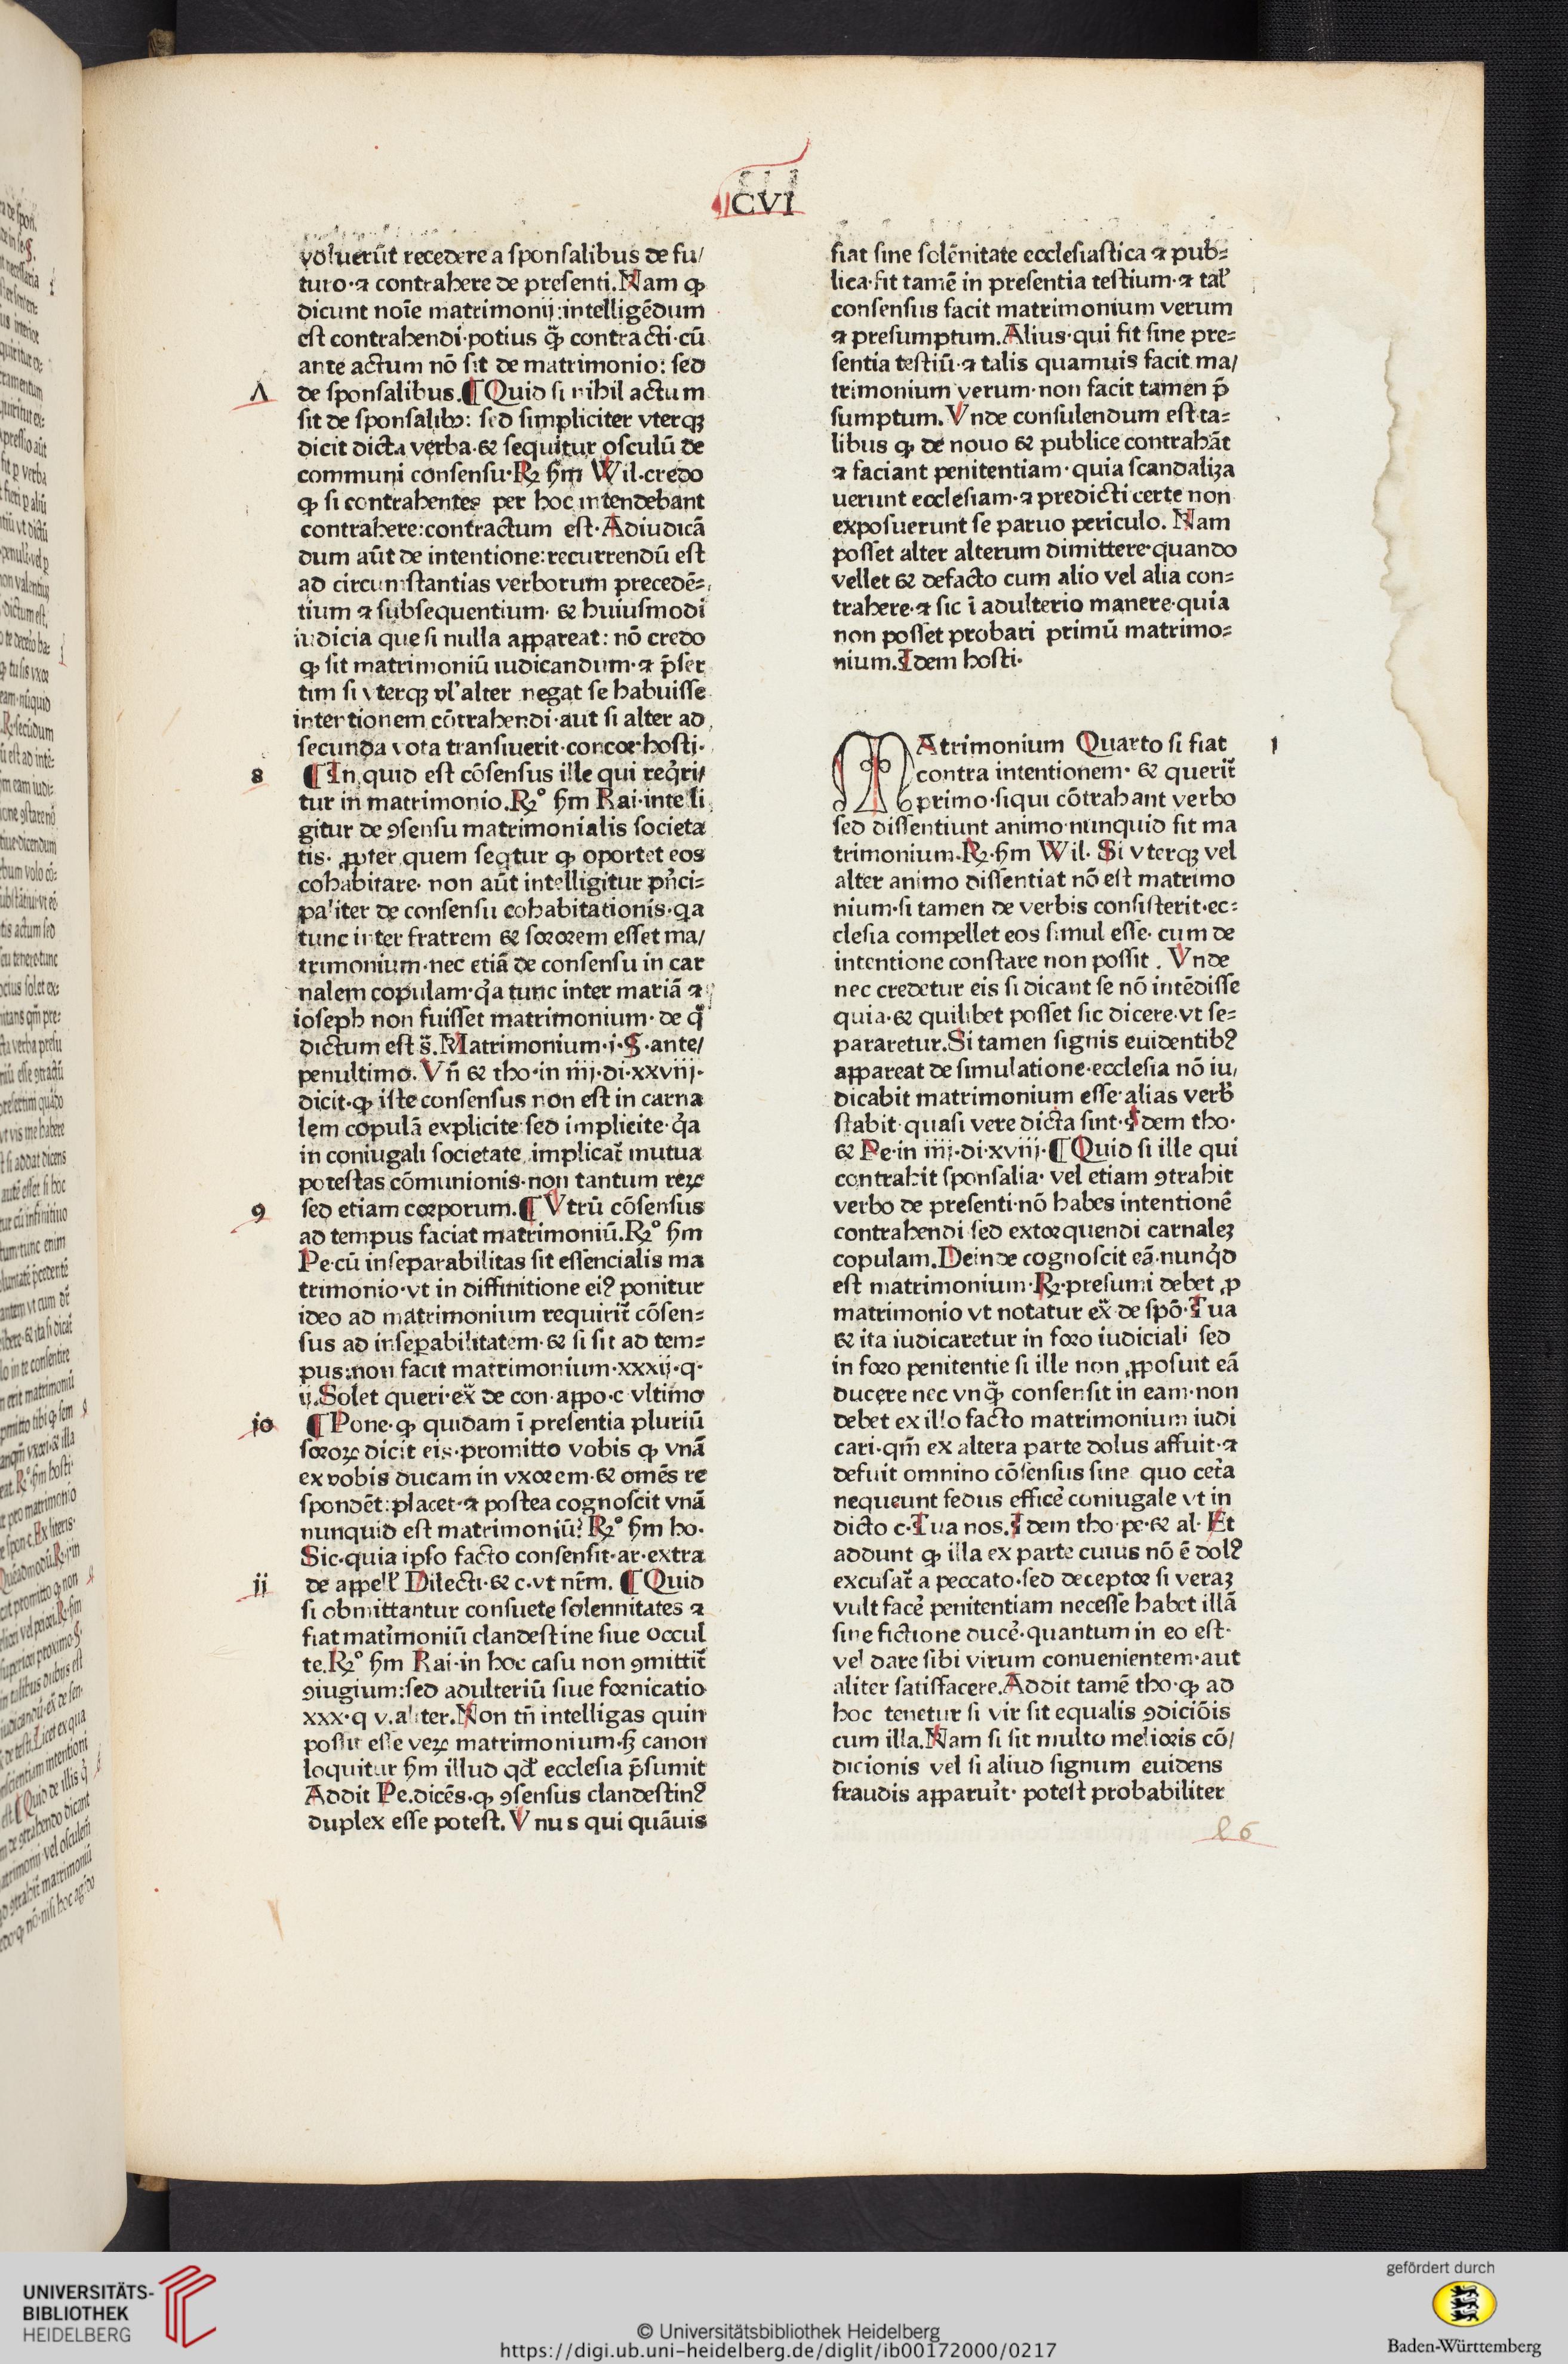 CVI
voluerūt recedere a sponsalibus de fu/
turo·⁊ contrahere de presenti.Nam ꝙ
dicunt noīe matrimonij:intelligēdum
est contrahendi·potius q̄ꝫ contracti·cū
ante actum nō sit de matrimonio: sed
Λ
de sponsalibus.¶Quid si nihil actum
sit de sponsalibꝫ: sed simpliciter vterqꝫ
dicit dicta verba·& sequitur osculū de
communi consensu·℞ ẜm Wil·credo
ꝙ si contrahentes per hoc intendebant
contrahere:contractum est·Adiudicā
dum aūt de intentione:recurrendū est
ad circumstantias verborum precedē=
tium ⁊ subsequentium· & huiusmodi
iudicia que si nulla appareat: nō credo
ꝙ sit matrimoniū iudicandum·⁊ p̄ser
tim si vterqꝫ vl' alter negat se habuisse
intentionem cōtrahendi·aut si alter ad
secunda vota transiuerit·concor·hosti·
8
¶In quid est cōsensus ille qui reqͥri/
tur in matrimonio.℞º ẜm Rai·intelli
gitur de ꝯsensu matrimonialis societa
tis· ꝓpter quem seqͥtur ꝙ oportet eos
cohabitare· non aūt intelligitur pͥnci=
paliter de consensu cohabitationis·qͥa
tunc inter fratrem & sororem esset ma/
trimonium·nec etiā de consensu in car
nalem copulam·qͥa tunc inter mariā ⁊
ioseph non fuisset matrimonium· de qͣ
dictum est sͣ.Matrimonium·i·§·ante/
penultimo. Vn̄ & tho·in iiij·di·xxviij·
dicit·ꝙ iste consensus non est in carna
lem copulā explicite:sed implicite·qͥa
in coniugali societate implicat̄ mutua
potestas cōmunionis·non tantum reꝝ
9
sed etiam corporum.¶Vtrū cōsensus
ad tempus faciat matrimoniū.℞º ẜm
Pe·cū inseparabilitas sit essencialis ma
trimonio·vt in diffinitione eiꝰ ponitur
ideo ad matrimonium requirit̄ cōsen=
sus ad inseꝑabilitatem·& si sit ad tem=
pus:non facit matrimonium·xxxij·q·
ij.Solet queri·exͣ de con·appo·c vltimo
io
¶Pone·ꝙ quidam ī presentia pluriū
sororꝝ dicit eis·promitto vobis ꝙ vnā
ex vobis ducam in vxorem·& omēs re
spondēt:placet·⁊ postea cognoscit vnā
nunquid est matrimoniū? ℞º ẜm ho·
Sic·quia ipso facto consensit·ar·extra
ii
de appell' Dilecti·& c·vt nr̄m. ¶Quid
si obmittantur consuete solennitates ⁊
fiat matͥmoniū clandestine siue occul
te.℞º ẜm Rai·in hoc casu non ꝯmittit̄
ꝯiugium:sed adulteriū siue fornicatio
xxx·q v.aliter.Non tn̄ intelligas quin
possit esse veꝝ matrimonium·sꝫ canon
loquitur ẜm illud qd' ecclesia p̄sumit
Addit Pe.dicēs·ꝙ ꝯsensus clandestinꝰ
duplex esse potest. Vnus qui quāuis
fiat sine solēnitate ecclesiastica ⁊ pub=
lica·fit tamē in presentia testium·⁊ tal'
consensus facit matrimonium verum
⁊ presumptum.Alius·qui fit sine pre=
sentia testiū·⁊ talis quamuis facit ma/
trimonium verum·non facit tamen p̄
sumptum. Vnde consulendum est ta=
libus ꝙ de nouo & publice contrahāt
⁊ faciant penitentiam· quia scandaliza
uerunt ecclesiam·⁊ predicti certe non
exposuerunt se paruo periculo. Nam
posset alter alterum dimittere·quando
vellet & defacto cum alio vel alia con=
trahere·⁊ sic ī adulterio manere·quia
non posset probari primū matrimo=
nium.Idem hosti·
MAtrimonium Quarto si fiat
1
contra intentionem· & querit̄
primo·siqui cōtrahant verbo
sed dissentiunt animo·nunquid fit ma
trimonium·℞·ẜm Wil· Si vterqꝫ vel
alter animo dissentiat nō est matrimo
nium·si tamen de verbis consisterit·ec=
clesia compellet eos simul esse· cum de
intentione constare non possit . Vnde
nec credetur eis si dicant se nō intēdisse
quia·& quilibet posset sic dicere·vt se=
pararetur.Si tamen signis euidentibꝰ
appareat de simulatione·ecclesia nō iu/
dicabit matrimonium esse·alias verb'
stabit·quasi vere dicta sint·Idem tho·
& Pe·in iiij·di·xviij·¶Quid si ille qui
contrahit sponsalia· vel etiam ꝯtrahit
verbo de presenti·nō habēs intentionē
contrahendi sed extorquendi carnaleꝫ
copulam.Deinde cognoscit eā·nunqͥd
est matrimonium·℞·presumi debet ꝓ
matrimonio vt notatur exͣ de spō·Tua
& ita iudicaretur in foro iudiciali sed
in foro penitentie si ille non ꝓposuit eā
ducere nec vnq̄ꝫ consensit in eam·non
debet ex illo facto matrimonium iudi
cari·qm̄ ex altera parte dolus affuit·⁊
defuit omnino cōsensus sine quo cet̓a
nequeunt fedus effice̓ coniugale vt in
dicto c·Tua nos.Idem tho·pe·& al· Et
addunt ꝙ illa ex parte cuius nō ē dolꝰ
excusat̄ a peccato·sed deceptor si veraꝫ
vult face̓ penitentiam necesse habet illā
sine fictione duce̓·quantum in eo est·
vel dare sibi virum conuenientem·aut
aliter satisfacere.Addit tamē tho·ꝙ ad
hoc tenetur si vir sit equalis ꝯdiciōis
cum illa.Nam si sit multo melioris cō/
dicionis vel si aliud signum euidens
fraudis apparuit̓· potest probabiliter
l6
UNIVERSITÄTS-
BIBLIOTHEK
HEIDELBERG
© Universitätsbibliothek Heidelberg
https://digi.ub.uni-heidelberg.de/diglit/ib00172000/0217
gefördert durch
Baden-Württemberg